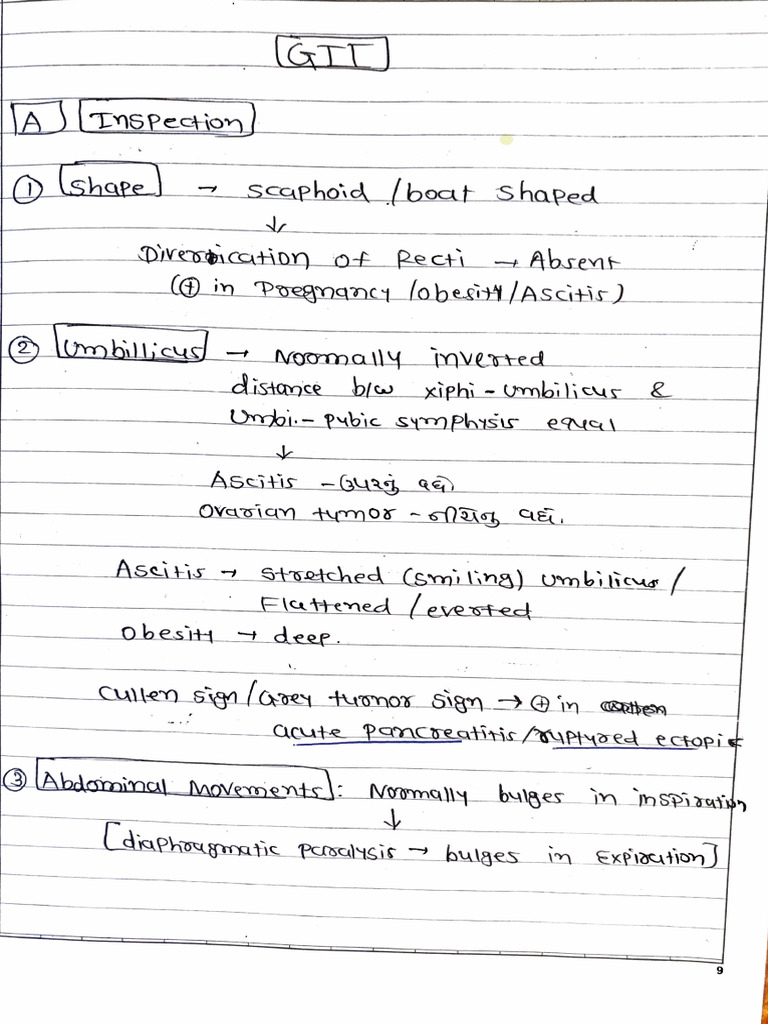 GIT
A Inspection
① Shape → scaphoid / boat shaped
↓
Diversication of Recti → Absent
(⊕ in Pregnancy / obesity / Ascitis)
② Umbillicus → Normally inverted
distance b/w xiphi-umbilicus &
Umbi.- pubic symphysis equal
↓
Ascitis - ઉપરનું વધે.
Ovarian tumor - નીચેનું વધે.
Ascitis → stretched (smiling) umbilicus /
Flattened / everted
Obesity → deep.
Cullen sign / Grey turnor sign → ⊕ in
acute pancreatitis / ruptured ectopic
③ Abdominal Movements : Normally bulges in inspiration
↓
[diaphragmatic paralysis → bulges in Expiration]
9